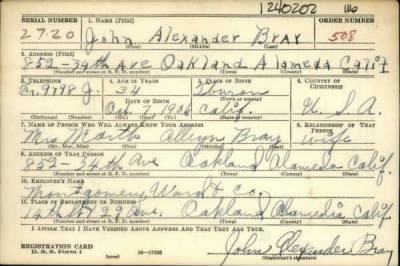 1240202
SERIAL NUMBER 1. NAME (Print) ORDER NUMBER
2720 John Alexander Bray 508
(First) (Middle) (Last)
2. ADDRESS (Print)
852-34th Ave Oakland Alameda Calif
(Number and street or R. F. D. number) (Town) (County) (State)
3. TELEPHONE 4. AGE IN YEARS 5. PLACE OF BIRTH 6. COUNTRY OF CITIZENSHIP
9798 J. 34
DATE OF BIRTH (Town or county)
Oct 7 1906 Calif. U. S. A.
(Exchange) (Number) (Mo.) (Day) (Yr.) (State or country)
7. NAME OF PERSON WHO WILL ALWAYS KNOW YOUR ADDRESS 8. RELATIONSHIP OF THAT PERSON
Mrs Bray wife
(Mr., Mrs., Miss) (First) (Middle) (Last)
9. ADDRESS OF THAT PERSON
852-34th Ave Oakland Alameda Calif.
(Number and street or R. F. D. number) (Town) (County) (State)
10. EMPLOYER'S NAME
Montgomery Ward & Co.
11. PLACE OF EMPLOYMENT OR BUSINESS
14th & 29 Ave. Oakland Alameda Calif
(Number and street or R. F. D. number) (Town) (County) (State)
I AFFIRM THAT I HAVE VERIFIED ABOVE ANSWERS AND THAT THEY ARE TRUE.
REGISTRATION CARD
D. S. S. Form 1 16-17105 John Alexander Bray
(over) (Registrant's signature)